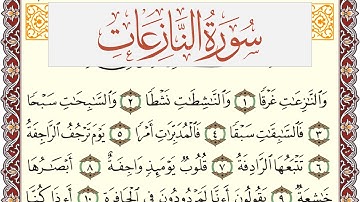 سُورَةُ النَّازِعَاتِ
وَٱلنَّٰزِعَٰتِ غَرْقًا ١ وَٱلنَّٰشِطَٰتِ نَشْطًا ٢ وَٱلسَّٰبِحَٰتِ سَبْحًا
٣ فَٱلسَّٰبِقَٰتِ سَبْقًا ٤ فَٱلْمُدَبِّرَٰتِ أَمْرًا ٥ يَوْمَ تَرْجُفُ ٱلرَّاجِفَةُ
٦ تَتْبَعُهَا ٱلرَّادِفَةُ ٧ قُلُوبٌ يَوْمَئِذٍ وَاجِفَةٌ ٨ أَبْصَٰرُهَا
خَٰشِعَةٌ ٩ يَقُولُونَ أَءِنَّا لَمَرْدُودُونَ فِى ٱلْحَافِرَةِ ١٠ أَءِذَا كُنَّا